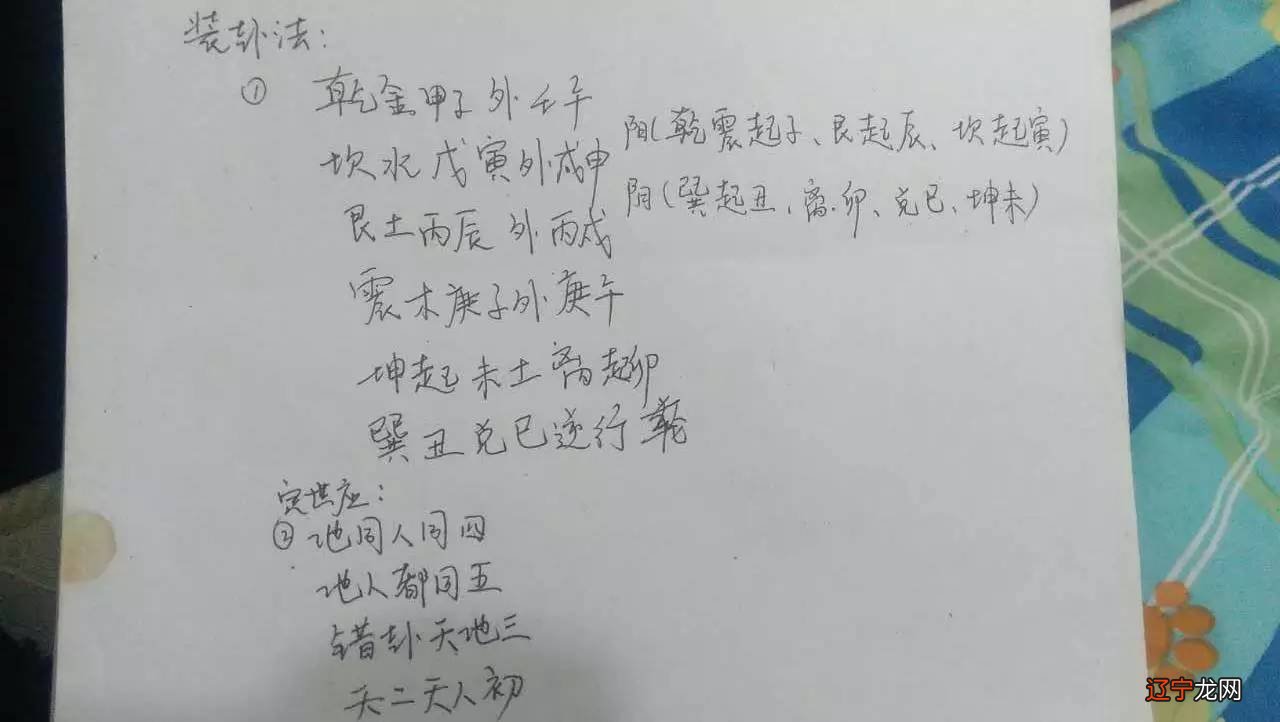 装卦法:
① 乾金甲子外壬午
坎水戊寅外戊申
艮土丙辰外丙戌
震木庚子外庚午
坤起未土离起卯
巽丑兑巳逆行轮
阳(乾震起子、艮起辰、坎起寅)
阴(巽起丑、离.卯、兑巳、坤未)
定世应:
② 地同人同四
地人都同五
错卦天地三
天二天人初
辽宁龙网